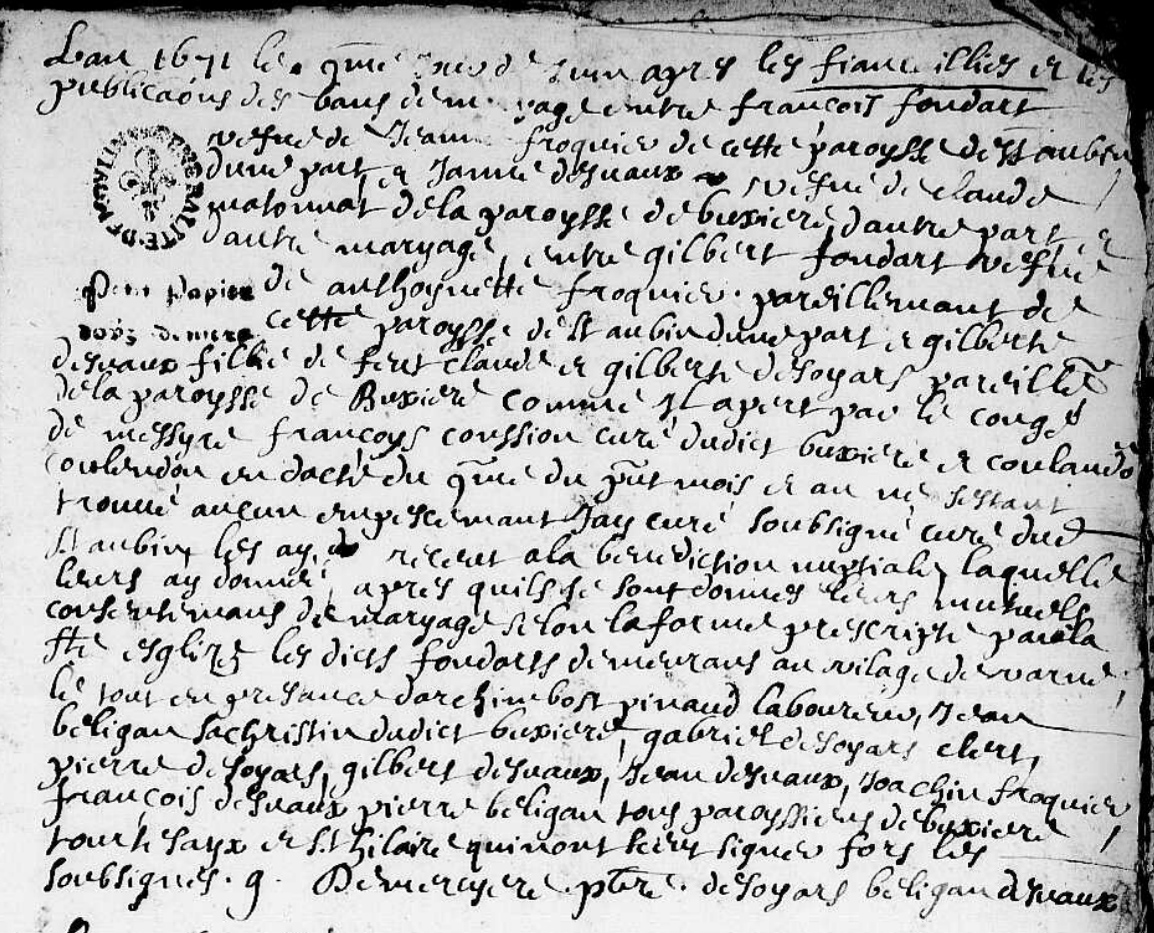 Lan 1671 le qme jour de Juin apres les fiancailliés et les
publicaõns des bans de maryage entre françois fondart
vefve de Jeanne froquier de cette paroysse de St aubin
dune part et Janne desvaux vefve de claude
matonnat de la paroysse de buxiere dautre part, et
dautre maryage, entre gilbert fondart vefve
de anthoynette froquier pareillemant de
cette paroysse de St aubin dune part et gilberte
desvaux fillie de feut claude et gilberte desoyars pareillet
de la paroysse de Buxiere comme Il apert par le conge
de messyre françoys coussion curé dudict buxiere et coulandõ
coulendon en dacte du qme du pnt mois et an ne sestant
trouvé aucun empescemant Jay curé soubsigné curé dud
St aubin les ay receut a la benediction nuptiale, laquelle
leurs ay donnée, apres quils se sont donnes leurs mutuels
consentemans de maryage selon la forme prescripte par la
Ste esglize les dicts fondarts demeurans au vilage de varne,
le tout en presance darchimbost pinaud laboureur, Jean
beligan sachristin dudict buxiere, gabriel desoyars clerc,
pierre desoyars, gilbert desvaux, Jean desvaux, Joachin froquier
françois desvaux pierre beligan tous paroyssiens de buxiere
tourtesaux et St hilaire qui nont sceu signer fors les
soubsignés. g. Demereyere ptre. desoyars beligan desvaux
GENERALITE DE MOVLINS
Petit Papier
demere